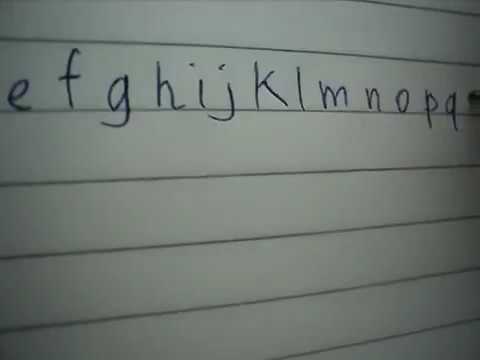 e f g h i j k l m n o p q